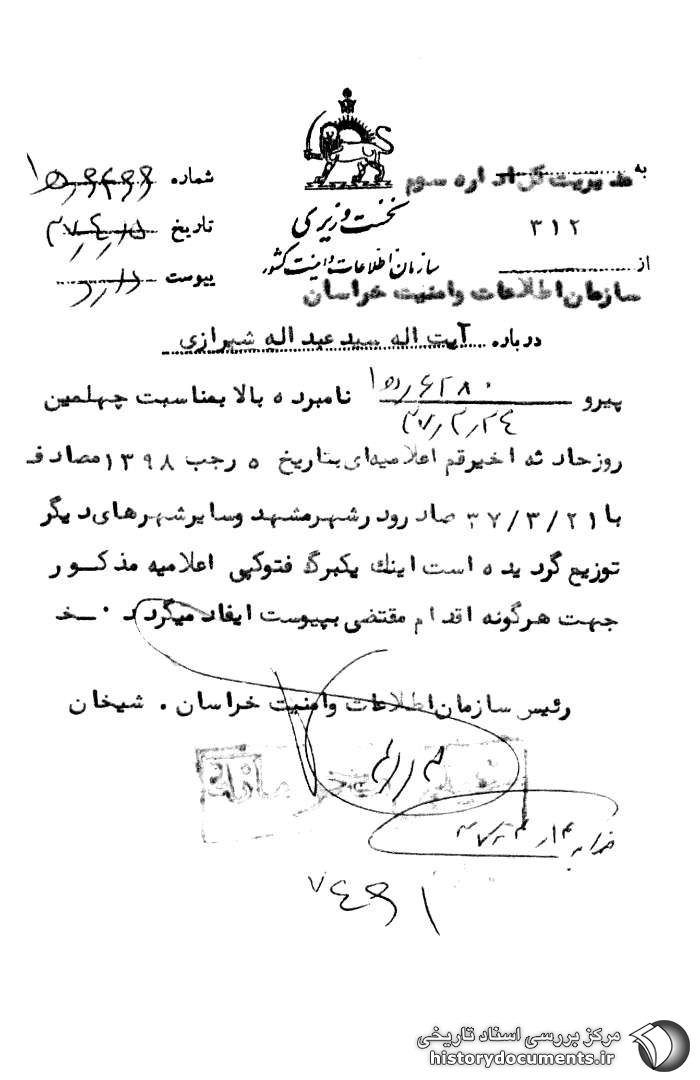 به مدیریت کل اداره سوم
۳۱۲
از سازمان اطلاعات و امنیت خراسان
نخست وزیری
سازمان اطلاعات و امنیت کشور
شماره
تاریخ
پیوست
درباره آیت اله سید عبد اله شیرازی
پیرو نامبرده بالا بمناسبت چهلمین
روز حادثه اخیر قم اعلامیه‌ای بتاریخ ۵ رجب ۱۳۹۸ مصادف
با ۳۷/۳/۲۱ صادر و در شهر مشهد و سایر شهرهای دیگر
توزیع گردیده است اینك یکبرگ فتوکپی اعلامیه مذکور
جهت هرگونه اقدام مقتضی بپیوست ایفاد میگردد . خ
رئیس سازمان اطلاعات و امنیت خراسان . شیخان
مرکز بررسی اسناد تاریخی
historydocuments.ir